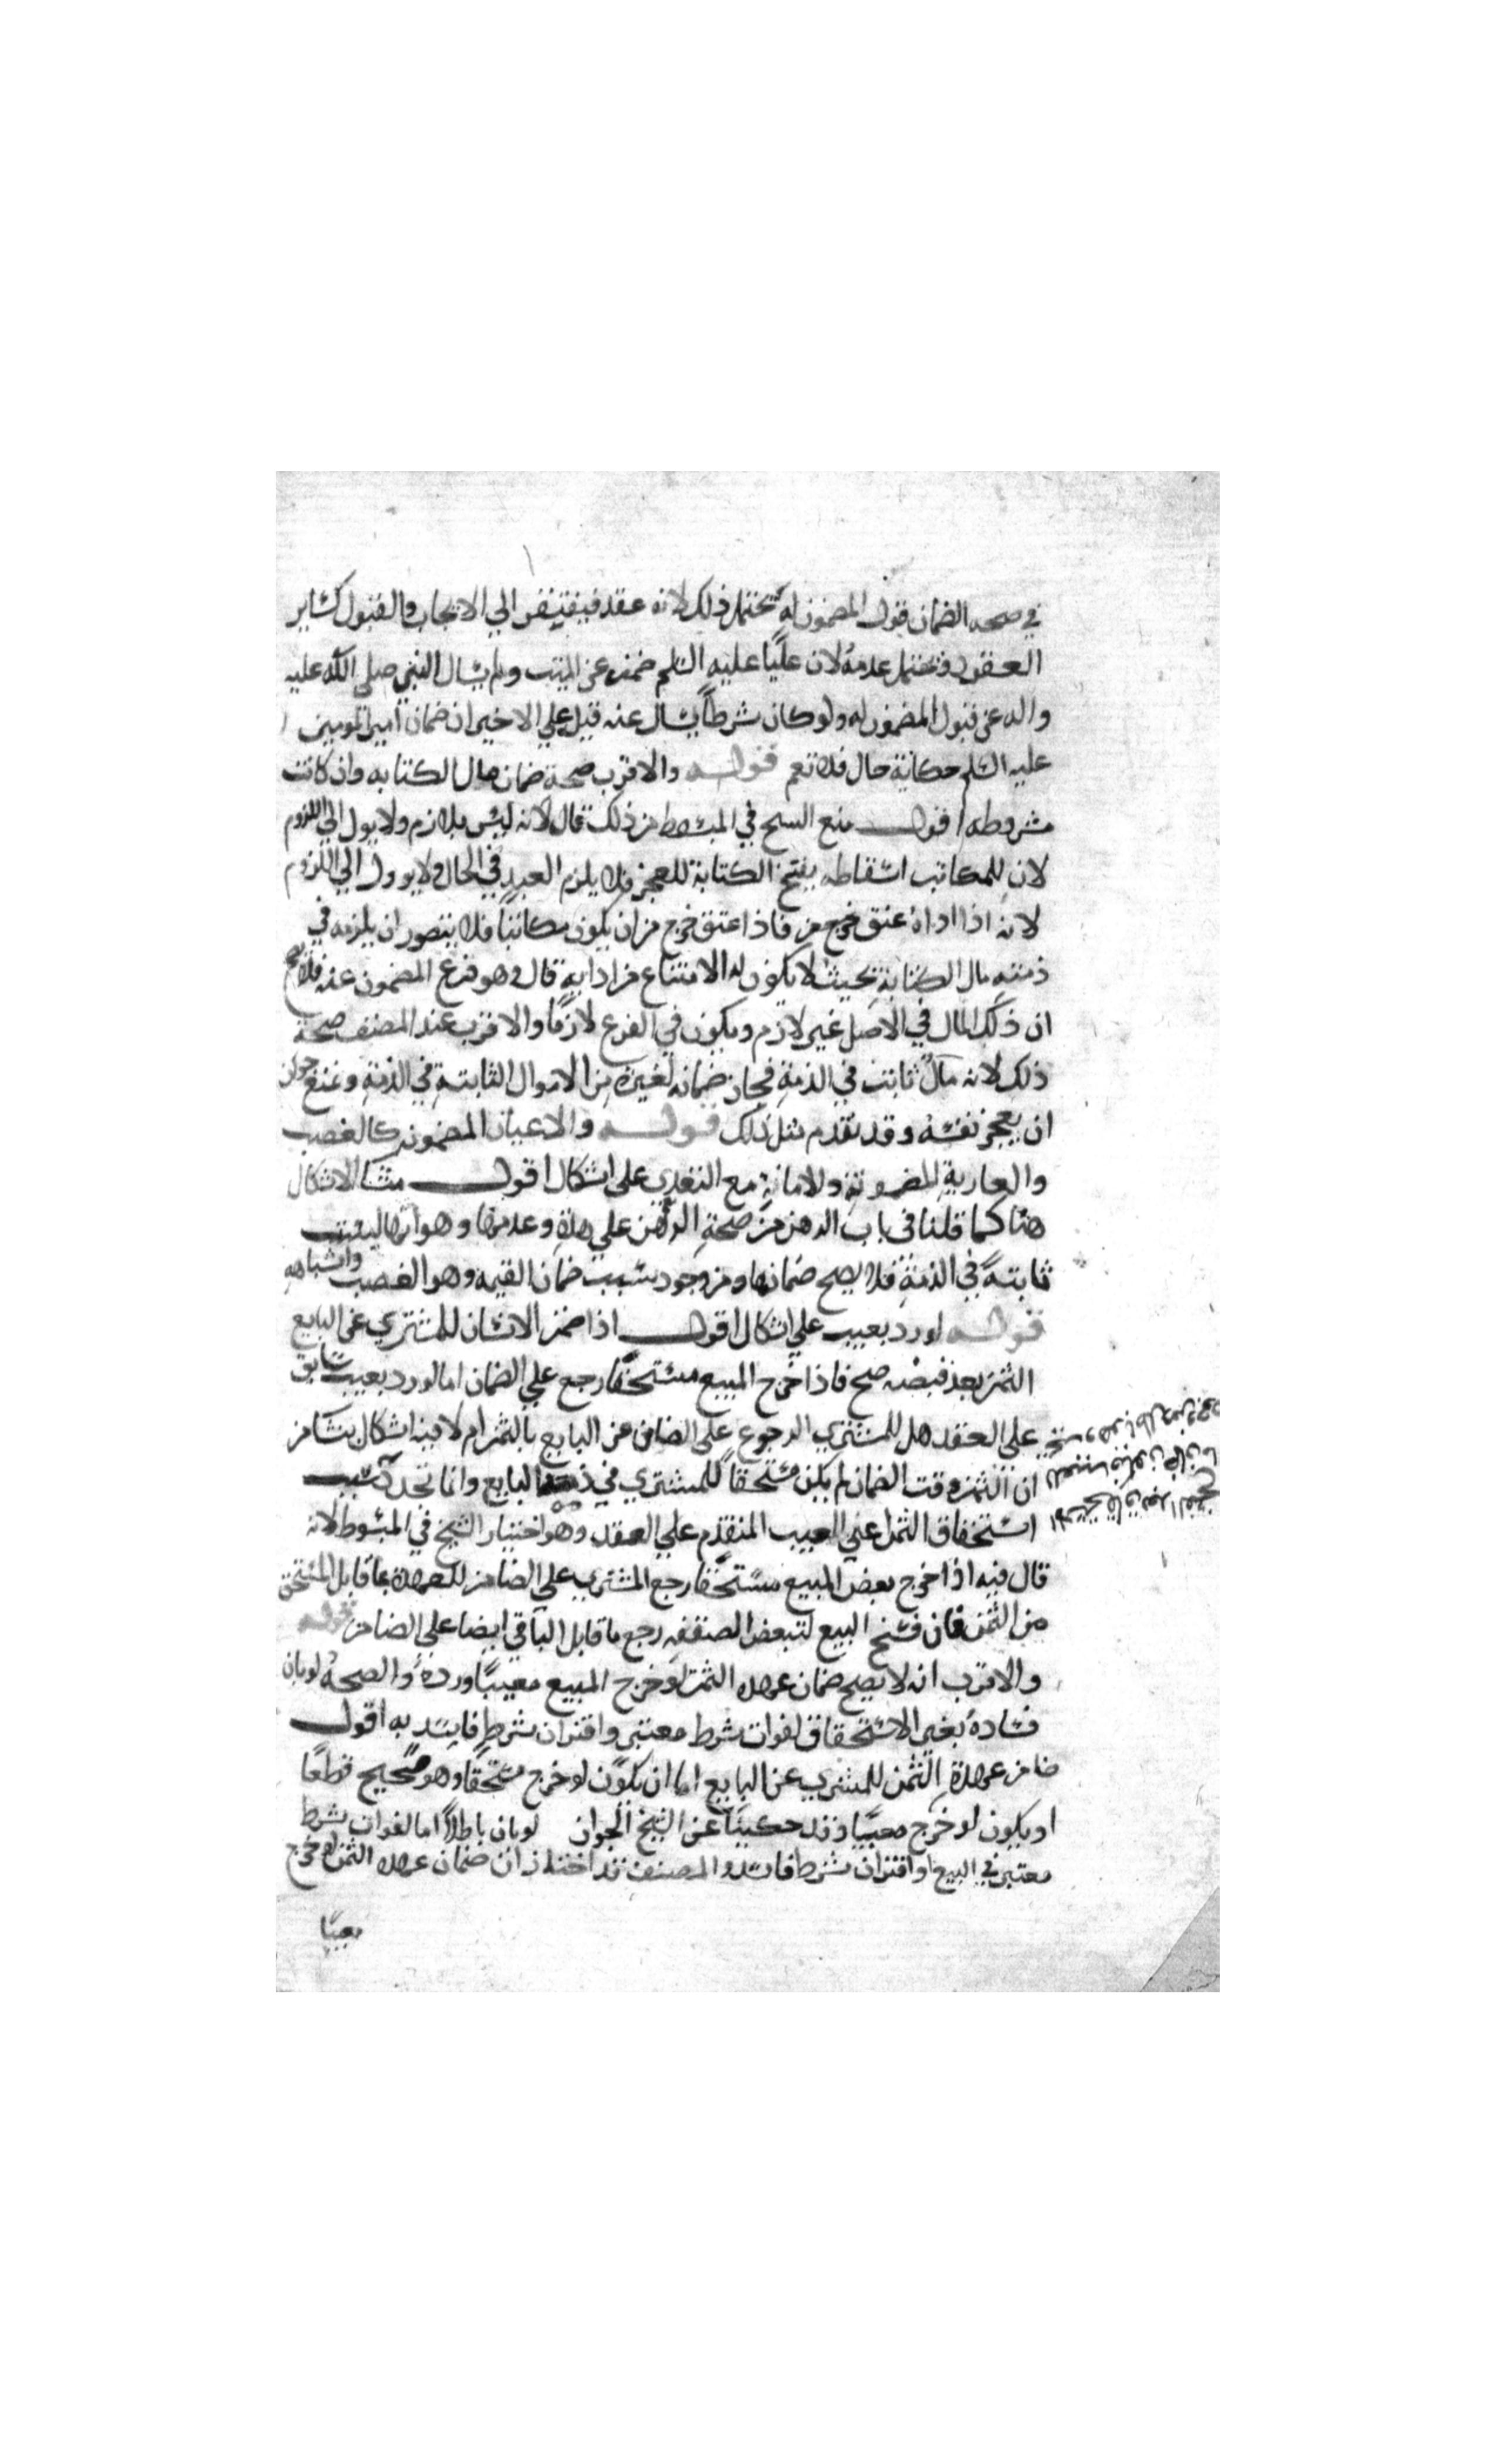 في صحه الضمان قبول المضمون له يحتمل ذلك لانه عقد فيفتقر الي الايجاب والقبول كساير
العقود ويحتمل عدمه لان عليًا عليه السلم ضمن عن الميت ولم يسال النبي صلى الله عليه
واله عن قبول المضمون له ولو كان شرطًا لسال عنه قيل علي الاخير ان ضمان امير المومنين
عليه السلم حكاية حال فلا تعم قوله والاقرب صحة ضمان مال الكتابه وان كانت
مشروطه اقول منع الشيخ في المبسوط من ذلك قال لانه ليس بلازم ولا يول الي اللزوم
لان للمكاتب اسقاطه بفسخ الكتابة للعجز فلا يلزم العبد في الحال ولا يوول الي اللزوم
لانه اذا اداه عتق خرج من فاذا عتق خرج من ان يكون مكاتبًا فلا يتصور ان يلزمه في
ذمته مال الكتابة بحيث لا يكون له الامتناع من ادايه قال وهو فرع المضمون عنه فلا يصح
ان ذلك المال في الاصل غير لازم ويكون في الفرع لازمًا والاقرب عند المصنف صحة
ذلك لانه مال ثابت في الذمة فجاز ضمانه لغيره من الاموال الثابتة في الذمة وغنع جواز
ان يعجز نفسه وقد تقدم مثل ذلك قوله والاعيان المضمونه كالغصب
والعارية المضمونة والامانة مع التعدي على اشكال اقول منشا الاشكال
هنا كما قلنا في باب الرهن من صحة الرهن على هذه وعدمها وهو انها ليست
ثابتةً في الذمة فلا يصح ضمانها ومن وجود سبب ضمان القيمه وهو الغصب واشباهه
قوله لو رد بعيب علي اشكال اقول اذا ضمن الانسان للمشتري عن البايع
الثمن بعد قبضه صح فاذا خرج المبيع مستحقًا رجع علي الضمان اما لو رد بعيب سابق
على العقد هل للمشتري الرجوع على الضامن عن البايع بالثمن ام لا فيه اشكال ينشا من
ان الثمن وقت الضمان لم يكن مستحقًا للمشتري في ذمة البايع وانما تجدد بسبب
استحقاق الثمن عني العيب المتقدم علي العقد وهو اختيار الشيخ في المبسوط لانه
قال فيه اذا خرج بعض المبيع مستحقًا رجع المشتري علي الضامن للعهدة بما قابل المستحق
من الثمن فان فسخ البيع لتبعض الصفقه رجع ما قابل الباقي ايضا علي الضامن قوله
والاقرب انه لا يصح ضمان عهده الثمن لو خرج المبيع معيبًا ورده والصحه لو بان
فساده بغير الاستحقاق لفوات شرط معتبر واقتران شرط فاسد به اقول
ضامن عهدة الثمن للمشتري عن البايع اما ان يكون لو خرج مستحقًا وهو صحيح قطعًا
او يكون لو خرج معيبًا وقد حكينا عن الشيخ الجواز لو بان باطلاً اما لفوات شرط
معتبر في البيع او اقتران شرط فاسد والمصنف قد اختار ان ضمان عهده الثمن لو خرج
معيبًا